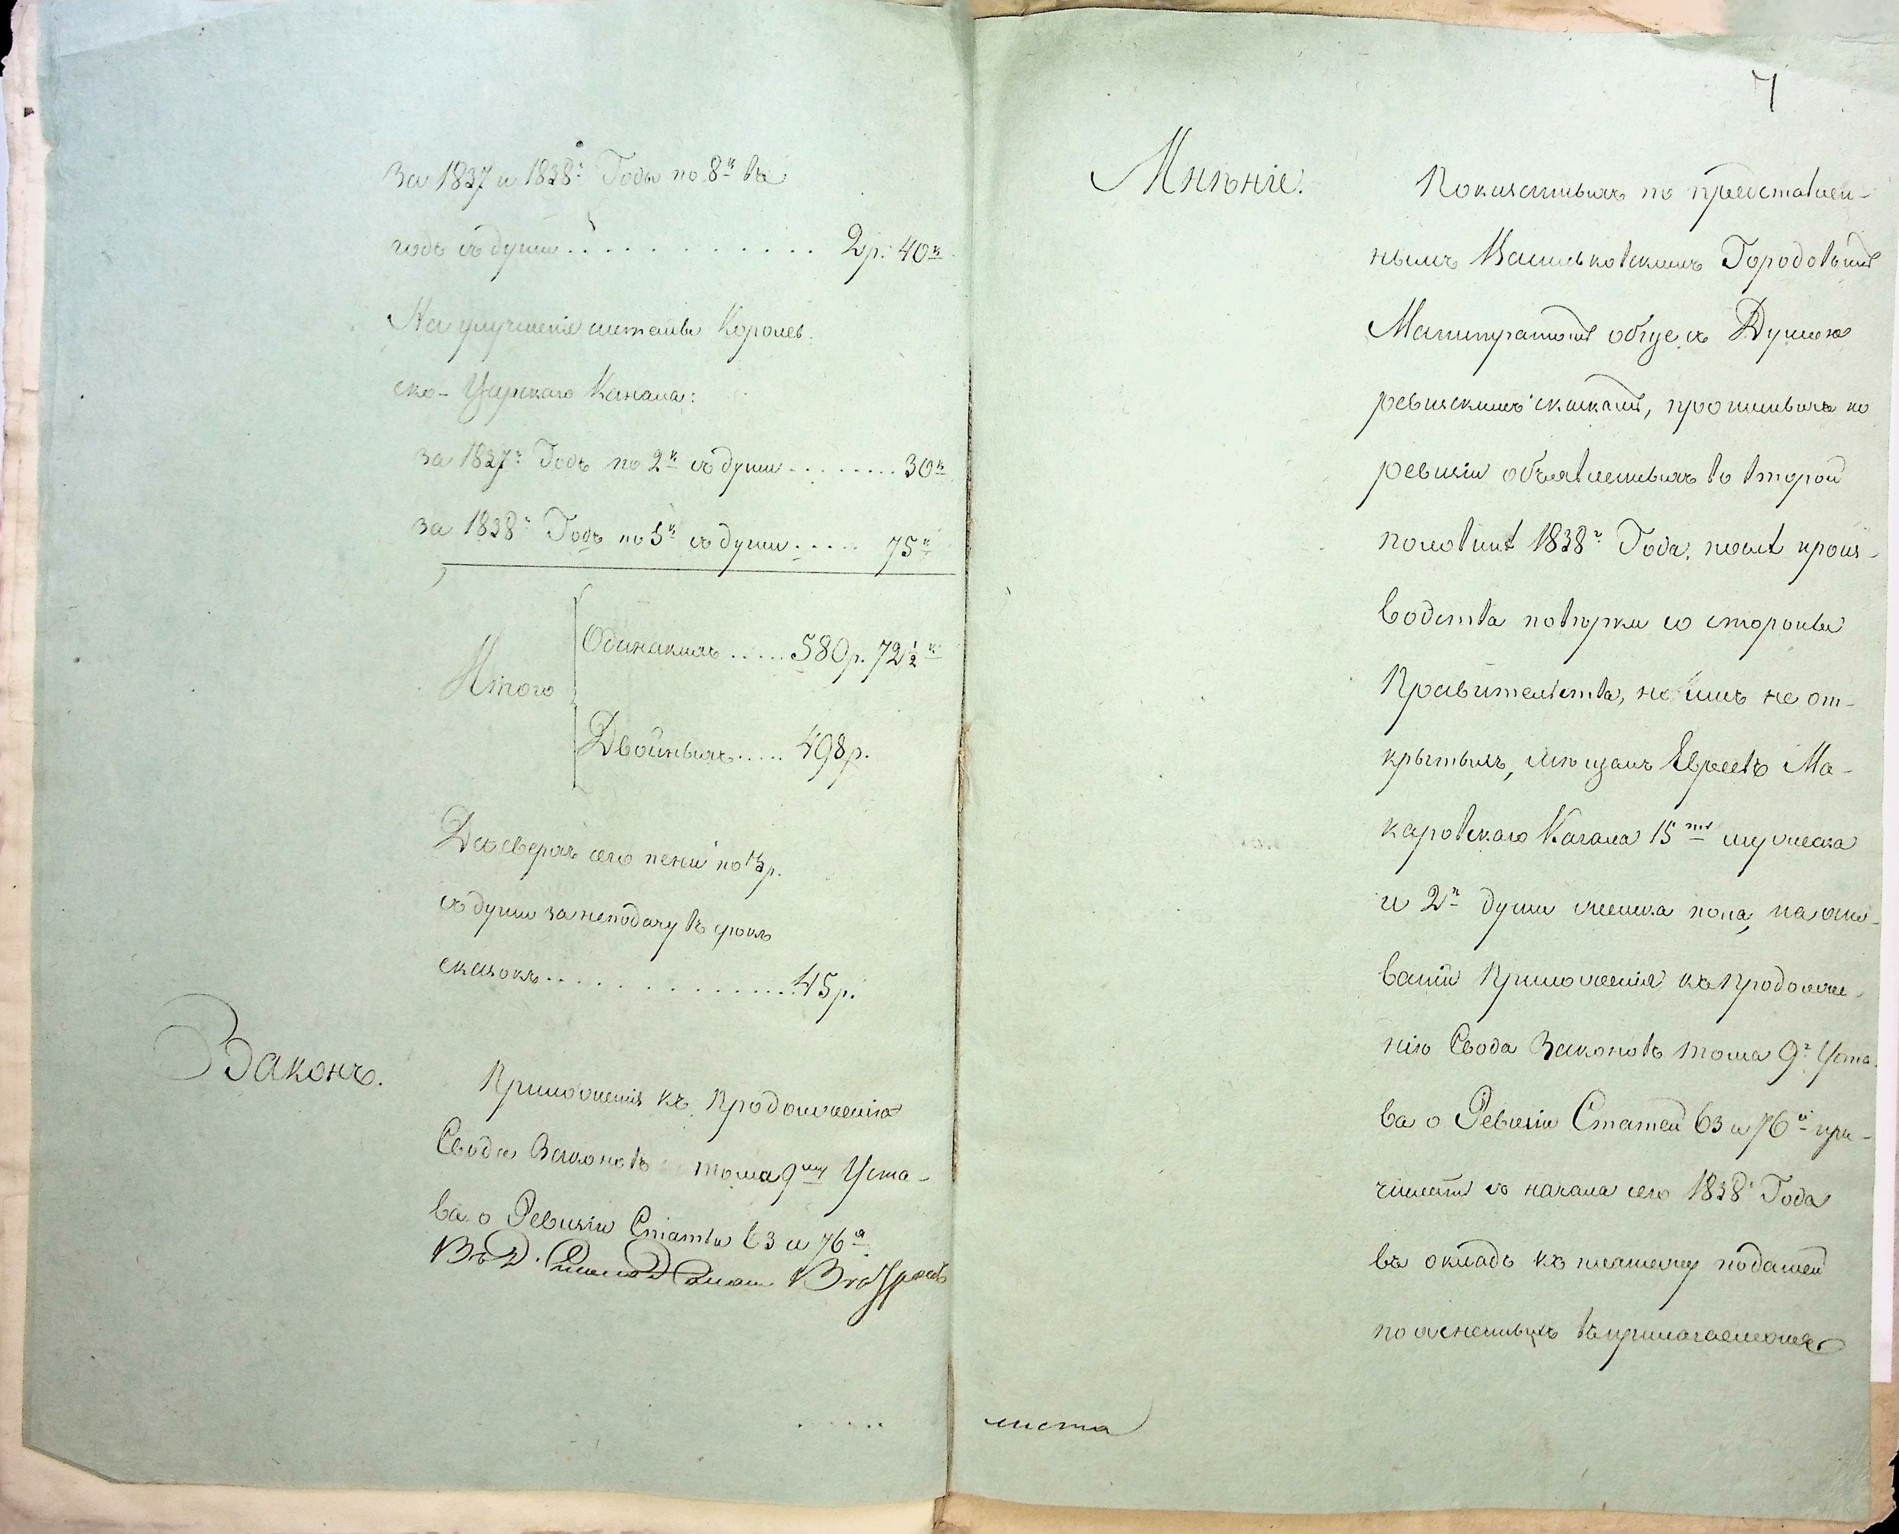 за 1837 и 1838й Годы по 8к въ
годъ съ души . . . . . . . . . . . . 2р. 40к
На улучшенія системы Королев
ско-Царскаго Канала:
за 1837й Годъ по 2к съ души . . . . . . . . 30к
за 1838й Годъ по 5к съ души . . . . . 75к
Итого
Одинакихъ . . . . . 580р. 72½к
Двойныхъ . . . . . 498р.
Да сверхъ сего пени по 3р.
съ души за неподачу въ срокъ
сказокъ . . . . . . . . . . . . . . 45р.
Законъ.
Приложенія къ Продолженію
Свода Законовъ тома 9му Уста-
ва о Ревизіи Статьи 63 и 76я
7
Мнѣніе.
Показанныхъ по представлен-
нымъ Васильковскимъ Городовымъ
Магистратомъ обще съ Думою
ревизскимъ сказкамъ, прописныхъ по
ревизіи объявленныхъ во второй
половинѣ 1838г Года, послѣ произ-
водства повѣрки со стороны
Правительства, но имъ не от-
крытыхъ, мѣщанъ Евреевъ Ма-
каровскаго Кагала 15ть мужеска
и 2ѣ души женска пола, на осно-
ваніи Приложенія къ Продолже-
нію Свода Законовъ тома 9г Уста
ва о Ревизіи Статей 63 и 76й при-
числить съ начала сего 1838г Года
въ окладъ къ платежу податей
поясненныхъ въ прилагаемомъ
листа